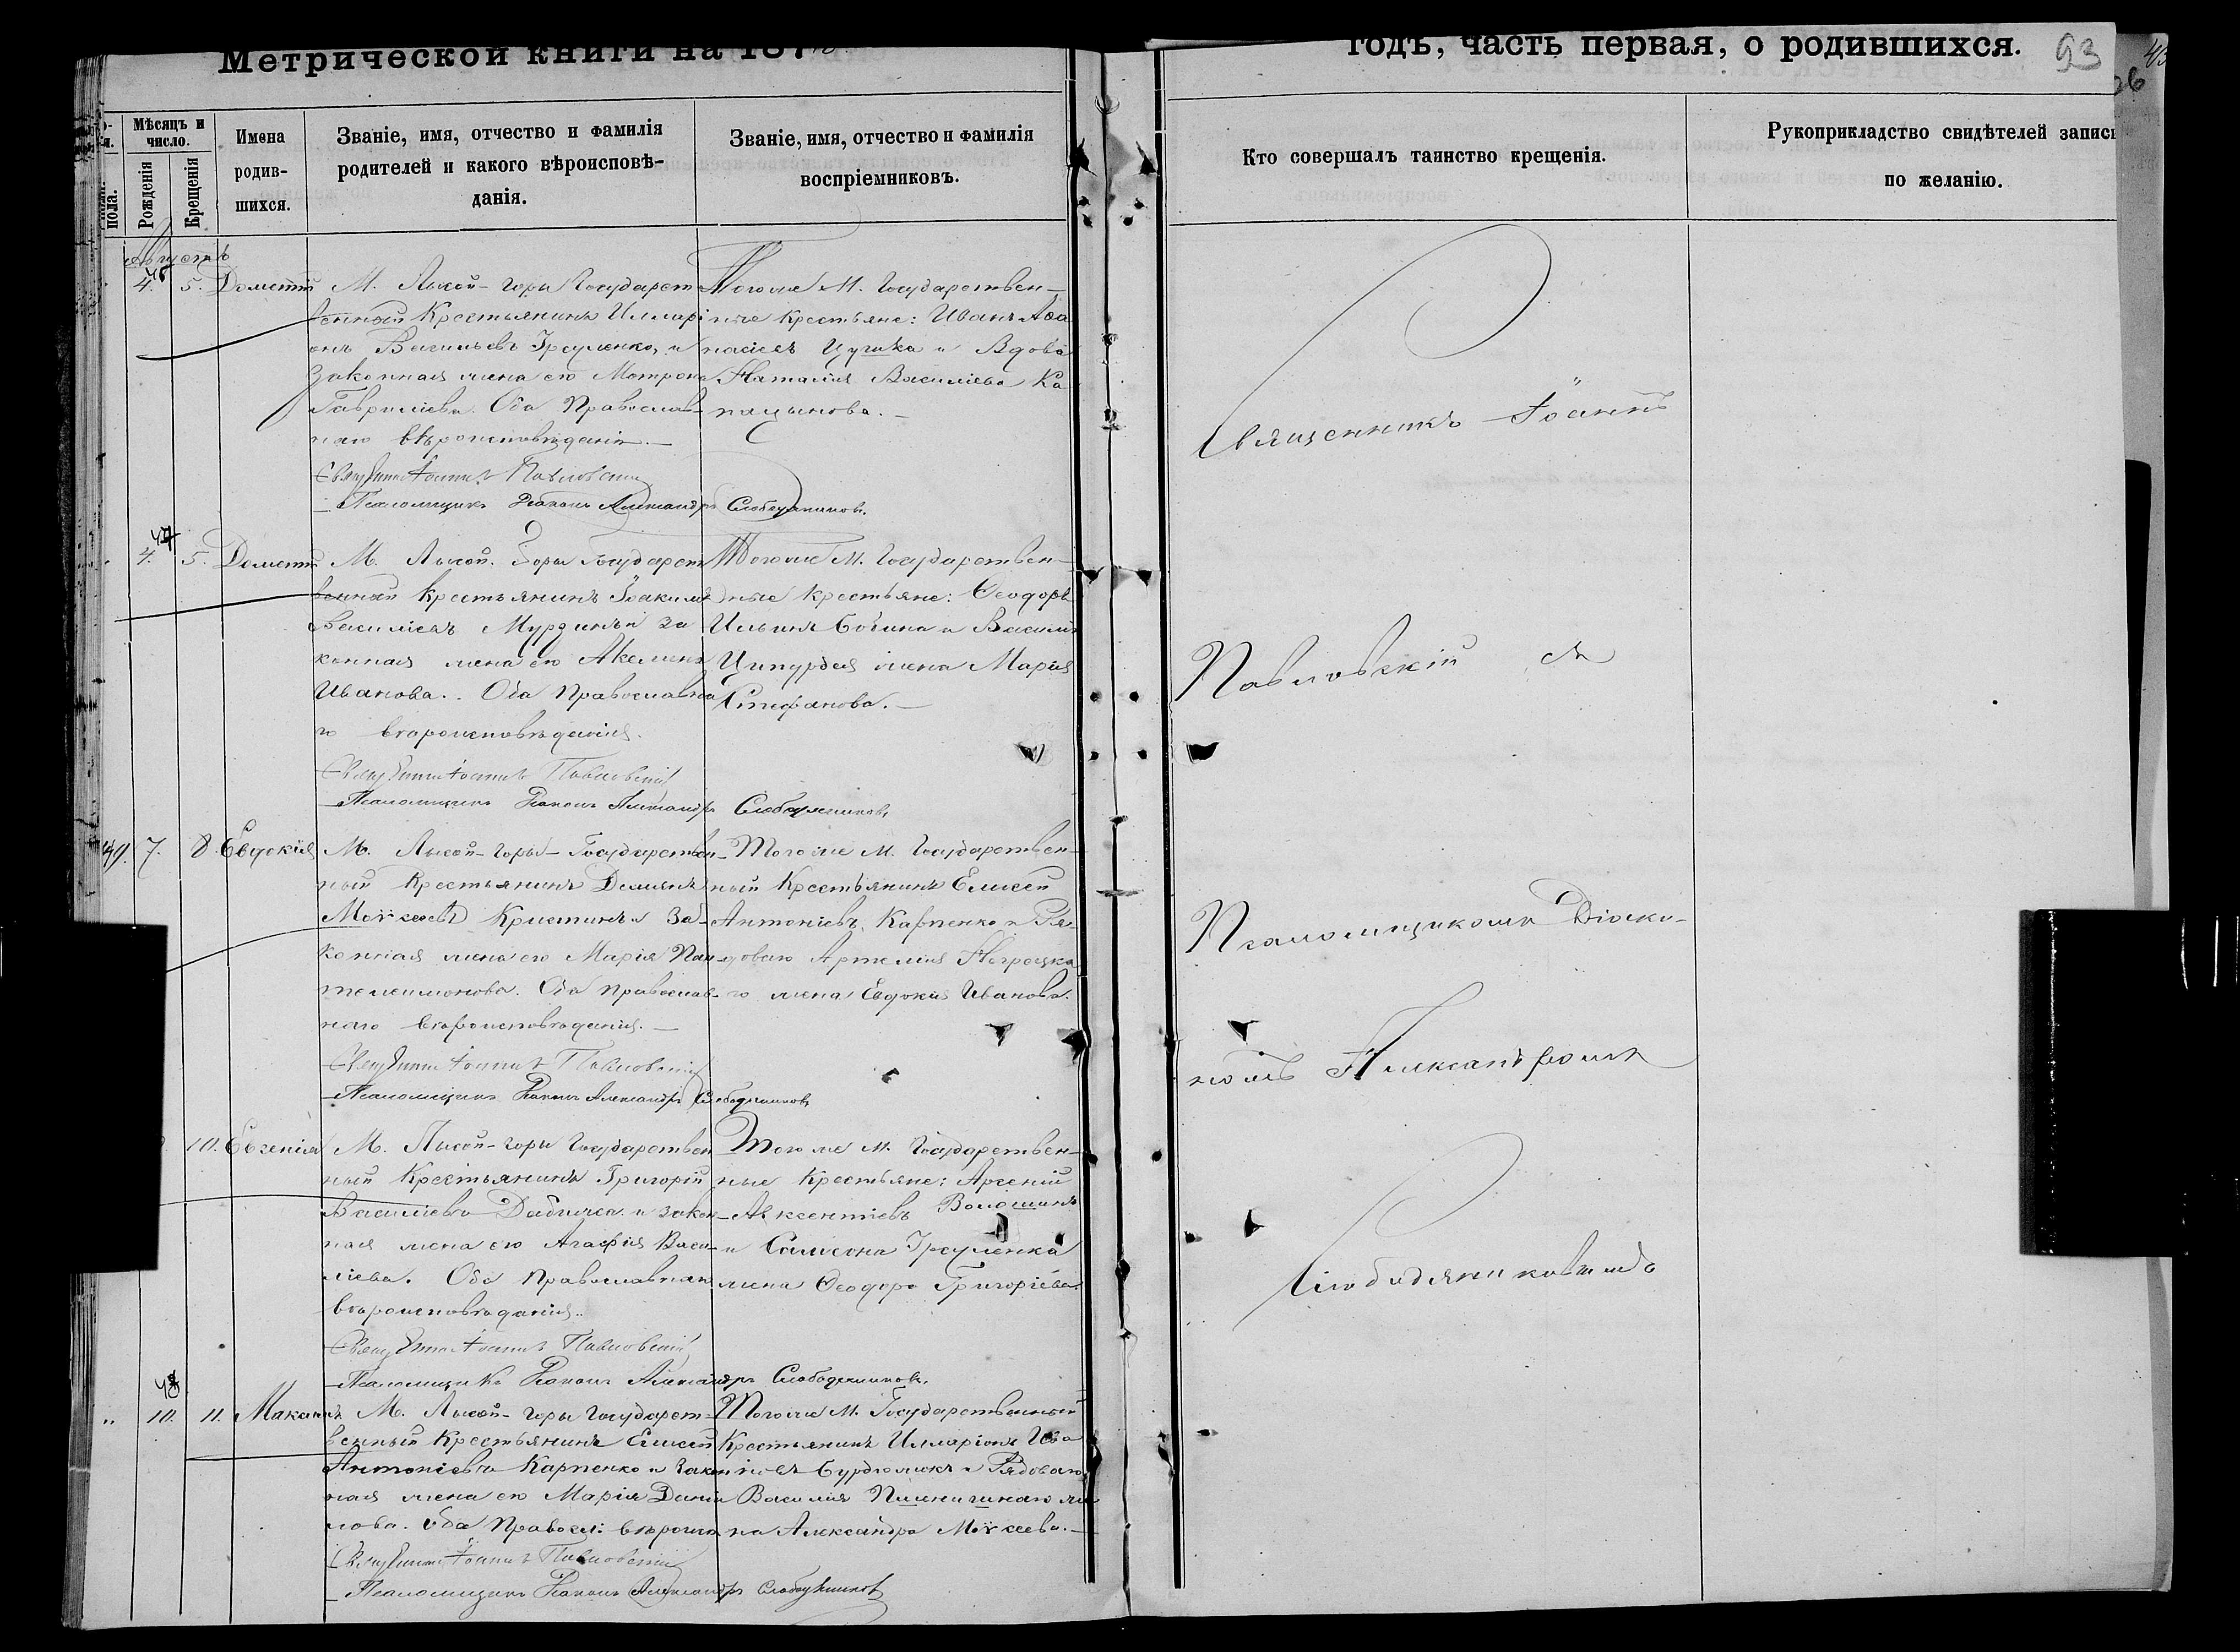 Метрической книги на 187
годъ, часть первая, о родившихся.
93
Мѣсяцъ и число.
Рожденія
Крещенія
Имена родив-
шихся.
Званіе, имя, отчество и фамилія
родителей и какого вѣроисповѣ-
данія.
Званіе, имя, отчество и фамилія
воспріемниковъ.
Кто совершалъ таинство крещенія.
Рукоприкладство свидѣтелей запис
по желанію.
Августъ
4. 5. Дометій
М. Лысой-горы Государст
венный Крестьянинъ Иллар
онъ Васильевъ и
Законная жена его Матрона
Гавриліева. Оба Православ-
наго вѣроисповѣданія.
Священникъ Іоаннъ Павловскій
Псаломщикъ Діаконъ Александръ Слободяниковъ.
Тогоже М. Государствен-
ные крестьяне: Иванъ Афа
насіевъ и Вдова
Наталія Василіева Ка
пацынова.
47
4. 5. Дометій
М. Лысой Горы Государст
венный Крестьянинъ Іоакимъ
Василіевъ Мурдинъ и за
конная жена его Акелина
Иванова. Оба Православна
го вѣроисповѣданія.
Священникъ Іоаннъ Павловскій
Псаломщикъ Діаконъ Александръ Слободяниковъ
Тогоже М. Государствен-
ные крестьяне: Ѳеодоръ
Ильинъ и Василія
жена Марія
Стефанова.
49. 7. 8. Евдокія
М. Лысой-горы Государствен-
ный Крестьянинъ Демьянъ
Моѵсеевъ Кристинъ и За-
конная жена его Марія Пан-
телеимонова. Оба православ-
наго вѣроисповѣданія.
Священникъ Іоаннъ Павловскій
Псаломщикъ Діаконъ Александръ Слободяниковъ
Тогоже М. Государствен-
ный Крестьянинъ Елисей
Антоніевъ Карпенко и Ря-
доваго Артемія
го жена Евдокія Иванова.
10. Евгенія
М. Лысой-горы Государствен
ный Крестьянинъ Григорій
Василіевъ и закон-
ная жена его Агафія Васи-
ліева. Оба Православнаго
вѣроисповѣданія.
Священникъ Іоаннъ Павловскій
Псаломщикъ Діаконъ Александръ Слободяниковъ.
Тогоже М. Государствен-
ные крестьяне: Арсеній
Авксентіевъ Волошинъ
и Симеона
жена Ѳеодора Григоріева.
48
10. 11.
М. Лысой-горы Государст-
венный Крестьянинъ Елисей
Антоніевъ Карпенко и закон
ная жена его Марія Дани
лова. Оба Правосл: вѣроисп.
Священникъ Іоаннъ Павловскій
Псаломщикъ Діаконъ Александръ Слободяниковъ
Тогоже М. Государственный
Крестьянинъ Илларіонъ Ива
новъ и Рядоваго
Василія же
на Александра Моѵсеева.
Священникъ Іоаннъ
Павловскій съ
Псаломщикомъ Діако-
номъ Александромъ
Слободяниковымъ